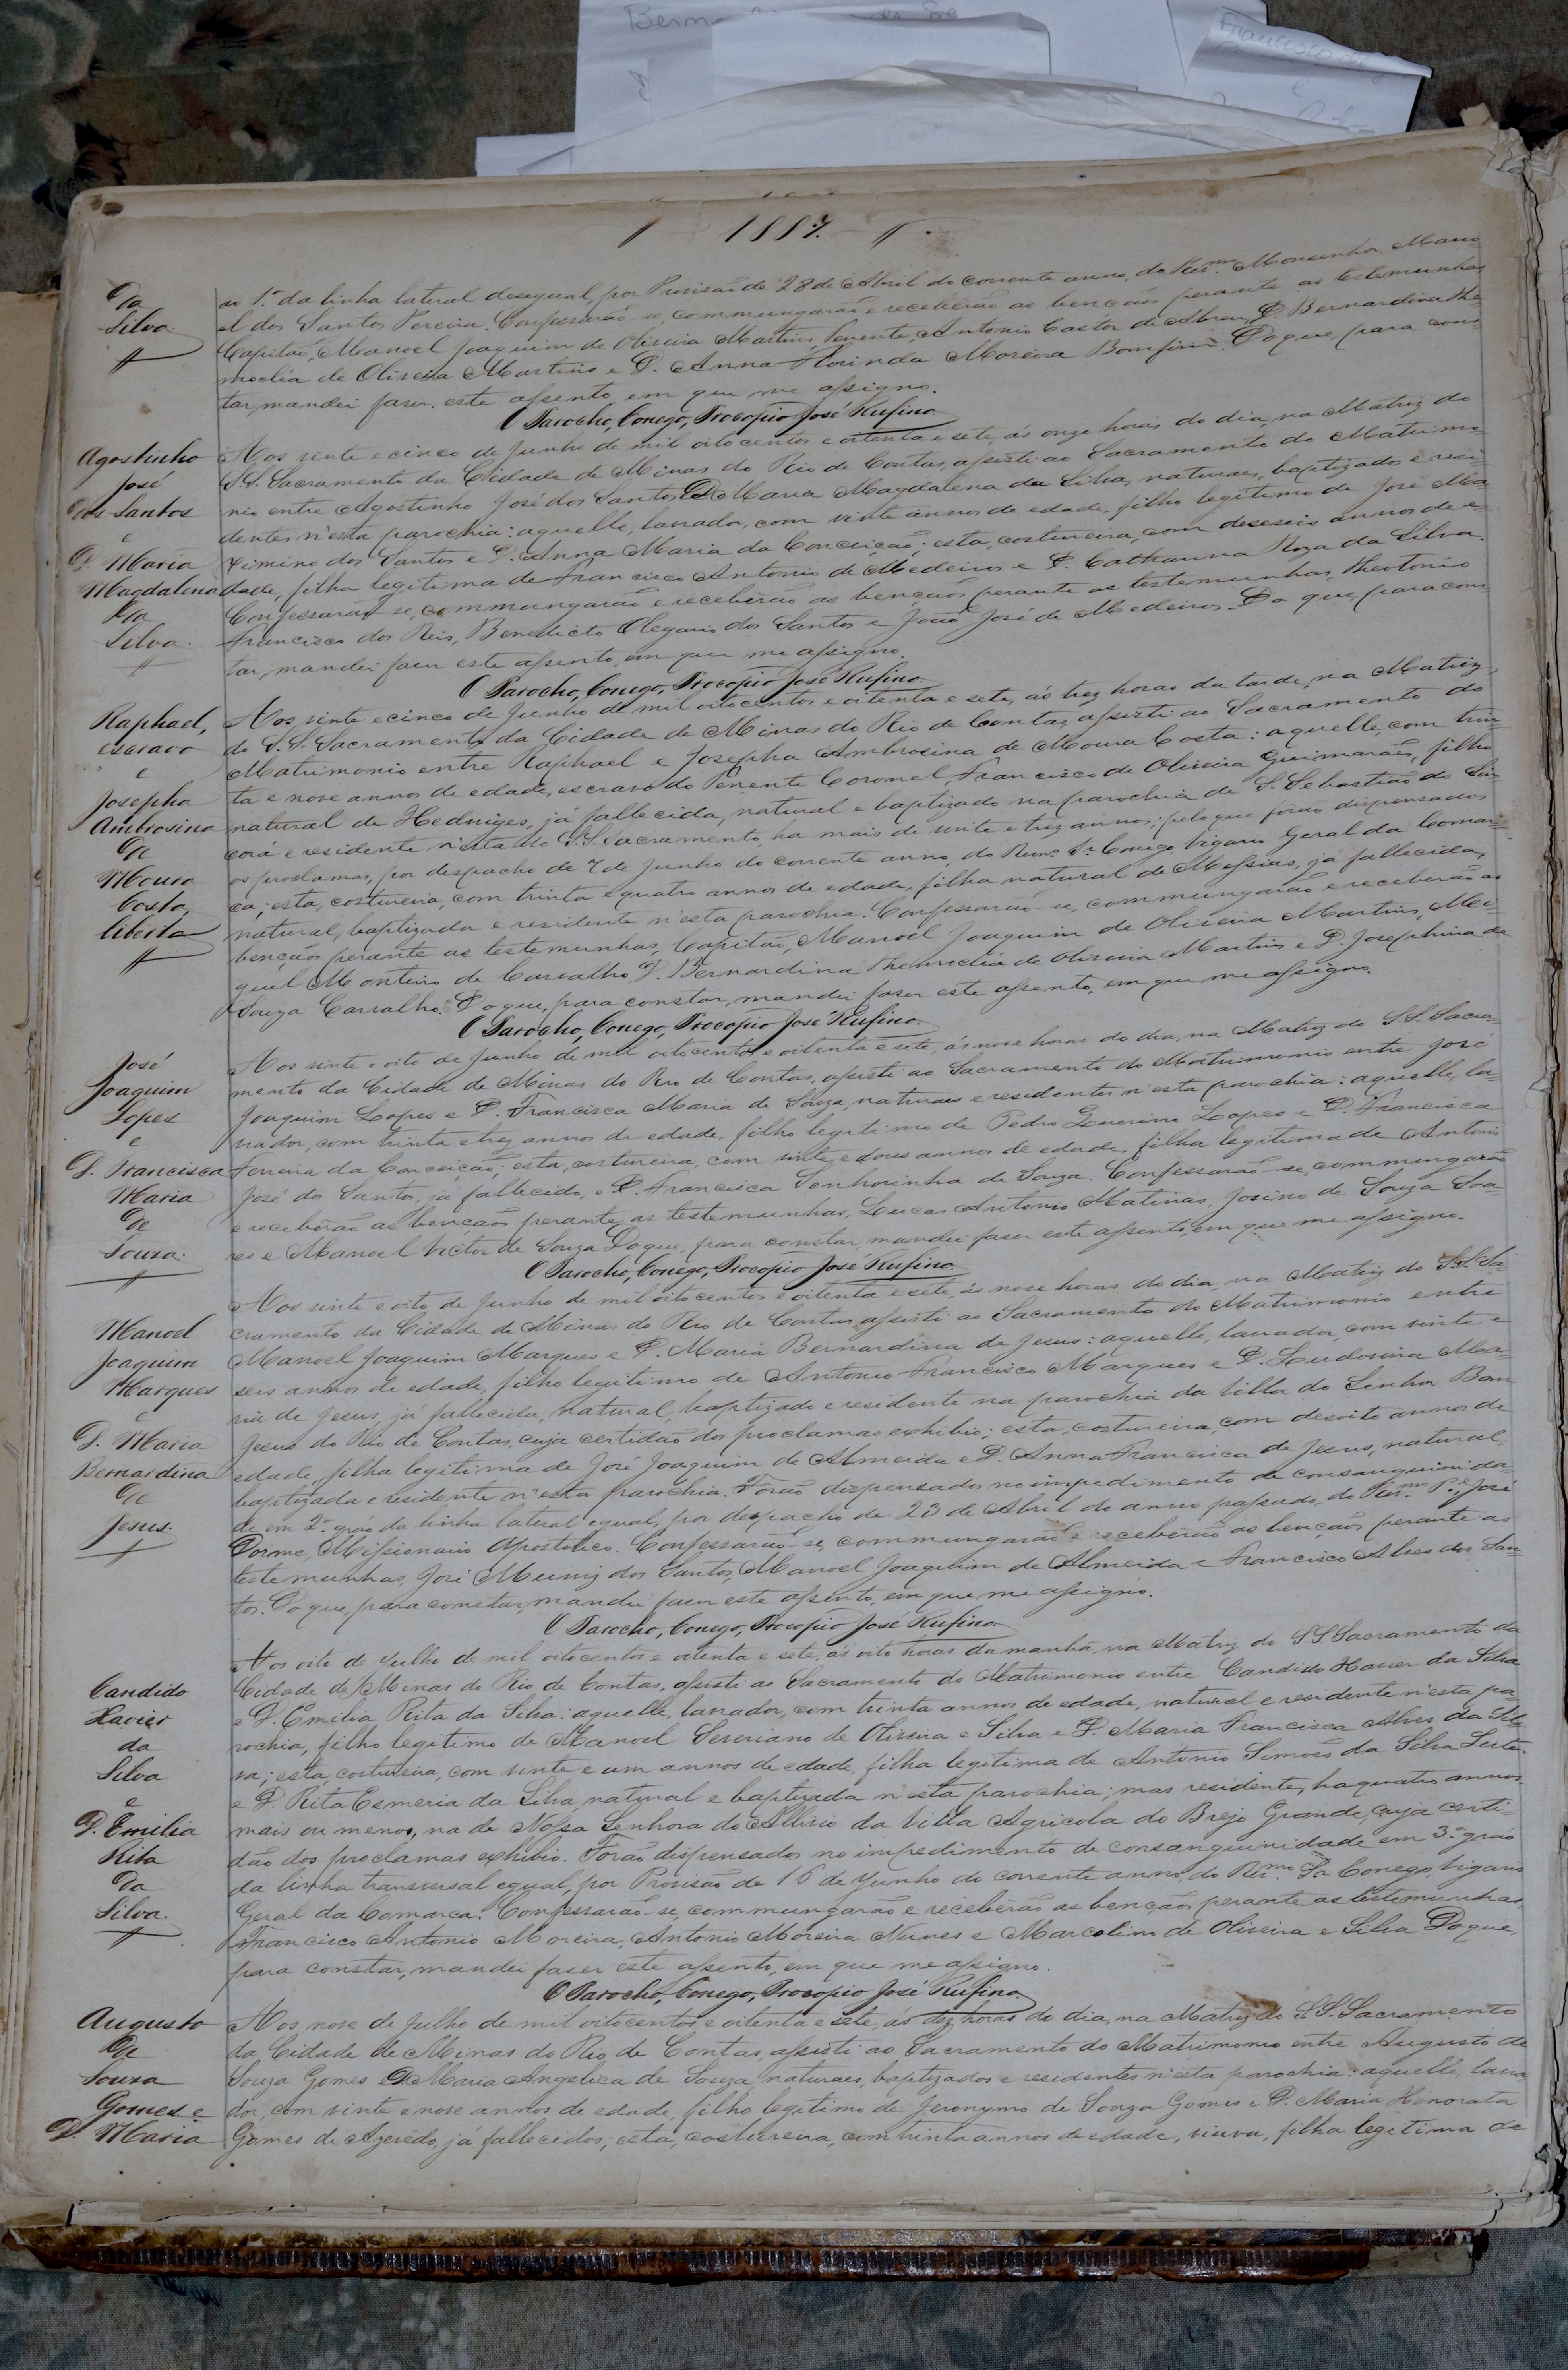 1887.
Da
Silva.
ao 1.º da linha lateral desegual, por Provisão de 28 de Abril do corrente anno, do Rev.mo Monsenhor Mano-
el dos Santos Pereira. Confessarão-se, commungarão e receberão as bençãos perante as testemunhas,
Capitão, Manoel Joaquim de Oliveira Martins, Tenente, Antonio Castor de Abreu, D. Bernardina The-
moclia de Oliveira Martins e D. Anna Florinda Moreira Bomfim. Do que, para cons-
tar, mandei faser este assento em que me assigno.
O Parocho, Conego, Procopio José Rufino.
Agostinho
José
dos Santos
e
D. Maria
Magdalena
da
Silva.
Aos vinte e cinco de Junho de mil oitocentos e oitenta e sete, ás onze horas do dia, na Matriz do
S.S. Sacramento da Cidade de Minas do Rio de Contas, assisti ao Sacramento do Matrimo-
nio entre Agostinho José dos Santos e D. Maria Magdalena da Silva, naturaes, baptizados e resi-
dentes n'esta parochia: aquelle, lavrador, com vinte annos de edade, filho legitimo de José Ma-
ximino dos Santos e D. Anna Maria da Conceição; esta, costureira, com deseseis annos de e-
dade, filha legitima de Francisco Antonio de Medeiros e D. Catharina Roza da Silva.
Confessarão-se, commungarão e receberão as bençãos perante as testemunhas, Theotonio
Francisco dos Reis, Benedicto Olegario dos Santos e João José de Medeiros. Do que, para cons-
tar, mandei faser este assento, em que me assigno.
O Parocho, Conego, Procopio José Rufino.
Raphael,
escravo
e
Josepha
Ambrosina
de
Moura
Costa,
liberta
Aos vinte e cinco de Junho de mil oitocentos e oitenta e sete, ás trez horas da tarde, na Matriz
do S.S. Sacramento da Cidade de Minas do Rio de Contas, assisti ao Sacramento do
Matrimonio entre Raphael e Josepha Ambrosina de Moura Costa: aquelle, com trin-
ta e nove annos de edade, escravo do Tenente Coronel, Francisco de Oliveira Guimarães, filho
natural de Hedviges, já fallecida, natural e baptizado na parochia de S. Sebastião do Sin-
corá e residente n'esta do S.S. Sacramento, ha mais de vinte e trez annos; pelo que forão dispensados
os proclamas, por despacho de 7 de Junho do corrente anno, do Rev.mo Sr. Conego, Vigario Geral da Comar-
ca; esta, costureira, com trinta e quatro annos de edade, filha natural de Messias, já fallecida,
natural, baptizada e residente n'esta parochia. Confessarão-se, commungarão e receberão as
bençãos perante as testemunhas, Capitão, Manoel Joaquim de Oliveira Martins, Mi-
guel Monteiro de Carvalho, D. Bernardina Themoclia de Oliveira Martins e D. Josephina de
Souza Carvalho. Do que, para constar, mandei faser este assento, em que me assigno.
O Parocho, Conego, Procopio José Rufino.
José
Joaquim
Lopes
e
D. Francisca
Maria
de
Souza.
Aos vinte e oito de Junho de mil oitocentos e oitenta e sete, ás nove horas do dia, na Matriz do S.S. Sacra-
mento da Cidade de Minas do Rio de Contas, assisti ao Sacramento do Matrimonio entre José
Joaquim Lopes e D. Francisca Maria de Souza, naturaes e residentes n'esta parochia: aquelle, la-
vrador, com trinta e trez annos de edade, filho legitimo de Pedro Querino Lopes e D. Francisca
Ferreira da Conceição; esta, costureira, com vinte e dous annos de edade, filha legitima de Antonio
José dos Santos, já fallecido, e D. Francisca Senhorinha de Souza. Confessarão-se, commungarão
e receberão as bençãos perante as testemunhas, Lucas Antonio Matinas, Josino de Souza Soa-
res e Manoel Victor de Souza. Do que, para constar, mandei faser este assento, em que me assigno.
O Parocho, Conego, Procopio José Rufino.
Manoel
Joaquim
Marques
e
D. Maria
Bernardina
de
Jesus.
Aos vinte e oito de Junho de mil oitocentos e oitenta e sete, ás nove horas do dia, na Matriz do S.S. Sa-
cramento da Cidade de Minas do Rio de Contas, assisti ao Sacramento do Matrimonio entre
Manoel Joaquim Marques e D. Maria Bernardina de Jesus: aquelle, lavrador, com vinte e
seis annos de edade, filho legitimo de Antonio Francisco Marques e D. Ludovina Ma-
ria de Jesus, já fallecida, natural, baptizado e residente na parochia da Villa do Senhor Bom
Jesus do Rio de Contas, cuja certidão dos proclamas exhibio; esta, costureira, com desoito annos de
edade, filha legitima de José Joaquim de Almeida e D. Anna Francisca de Jesus, natural,
baptizada e residente n'esta parochia. Forão dispensados no impedimento de consanguinida-
de em 2.º gráo da linha lateral egual, por despacho de 23 de Abril do anno passado, do Rev.mo P.e José
Dorme, Missionario Apostolico. Confessarão-se, commungarão e receberão as bençãos perante as
testemunhas, José Muniz dos Santos, Manoel Joaquim de Almeida e Francisco Alves dos San-
tos. Do que, para constar, mandei faser este assento, em que me assigno.
O Parocho, Conego, Procopio José Rufino.
Candido
Xavier
da
Silva
e
D. Emilia
Rita
da
Silva.
Aos oito de Julho de mil oitocentos e oitenta e sete, ás oito horas da manhã, na Matriz do S.S. Sacramento da
Cidade de Minas do Rio de Contas, assisti ao Sacramento do Matrimonio entre Candido Xavier da Silva
e D. Emilia Rita da Silva: aquelle, lavrador, com trinta annos de edade, natural e residente n'esta pa-
rochia, filho legitimo de Manoel Severiano de Oliveira e Silva e D. Maria Francisca Alves da Sil-
va; esta, costureira, com vinte e um annos de edade, filha legitima de Antonio Simões da Silva Leite
e D. Rita Esmeria da Silva, natural e baptizada n'esta parochia; mas residente, ha quatro annos
mais ou menos, na de Nossa Senhora do Allivio da Villa Agricola do Brejo Grande, cuja certi-
dão dos proclamas exhibio. Forão dispensados no impedimento de consanguinidade em 3.º gráo
da linha transversal egual, por Provisão de 16 de Junho do corrente anno, do Rev.mo Sr. Conego, Vigario
Geral da Comarca. Confessarão-se, commungarão e receberão as bençãos perante as testemunhas,
Francisco Antonio Moreira, Antonio Moreira Nunes e Marcolino de Oliveira e Silva. Do que,
para constar, mandei faser este assento, em que me assigno.
O Parocho, Conego, Procopio José Rufino.
Augusto
de
Souza
Gomes e
D. Maria
Aos nove de Julho de mil oitocentos e oitenta e sete, ás dez horas do dia, na Matriz do S.S. Sacramento
da Cidade de Minas do Rio de Contas, assisti ao Sacramento do Matrimonio entre Augusto de
Souza Gomes e D. Maria Angelica de Souza, naturaes, baptizados e residentes n'esta parochia: aquelle, lavra-
dor, com vinte e nove annos de edade, filho legitimo de Jeronymo de Souza Gomes e D. Maria Honorata
Gomes de Azevedo, já fallecidos; esta, costureira, com trinta annos de edade, viuva, filha legitima de